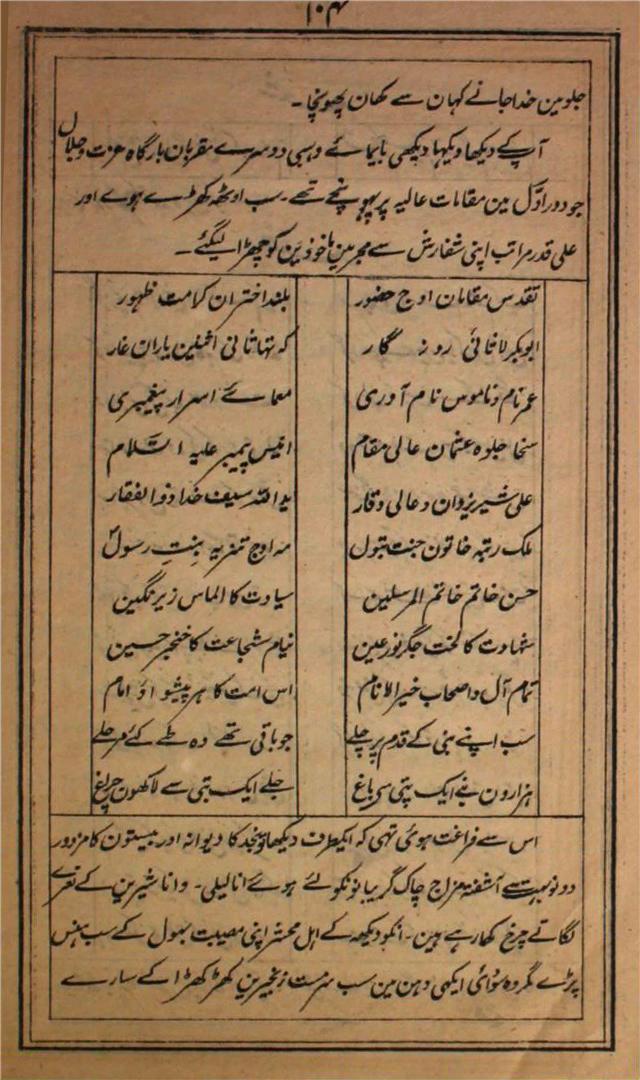 ۱۰۴
جلو مین خدا جانے کہان سے کہان پھونچا۔
آپ کے دیکھا ویکہا دیکھی بایمائے وہبی دوسرے مقربان بارگاہ عزت و جلال
جو دور اول مین مقامات عالیہ پر پہونچے تھے۔ سب اوٹھہ کھڑے ہوے اور
علی قدر مراتب اپنی شفارش سے مجرمین ماخوذین کو چھڑا لیگئے۔
تقدس مقامان اوج حضور بلند اختران کرامت ظہور
ابوبکر لاثانی روز گار کہ تہا ثانی اثنین یاران غار
عمر نام و ناموس نام آوری معمائے اسرار پیغمبری
سخا جلوہ عثمان عالی مقام انیس پیمبر علیہ السلام
علی شیر یزدان و عالی وقار ید اللہ سیف خدا ذوالفقار
ملک رتبہ خاتون جنت بتول مہ اوج تنزیہ بنتِ رسولؐ
حسن خاتم خاتم المرسلین سیادت کا الماس زیر نگین
شہادت کا لخت جگر نور عین نیام شجاعت کا خنجر حسین
تمام آل و اصحاب خیر الانام اس امت کا ہر پیشوا و امام
سب اپنے نبی کے قدم پر چلے جو باقی تھے وہ طے کئے مرحلے
ہزارون بنے ایک پتی سی باغ جلے ایک بتی سے لاکھون چراغ
اس سے فراغت ہوئی تہی کہ ایکطرف دیکھا تو نجد کا دیوانہ اور بیستون کا مزدور
دونو بہت سے آشفتہ مزاج چاک گریبانونکو لئے ہوئے انا لیلی۔ و انا شیرین کے نعرے
لگاتے چرخ کھا رہے ہین۔ انکو دیکھہ کے اہل محشر اپنی مصیبت بہول کے سب ہنس
پڑے مگر وہ سودائی ایکہی دہن مین سب سرمست زنجیرین کھڑ کھڑا کے سارے